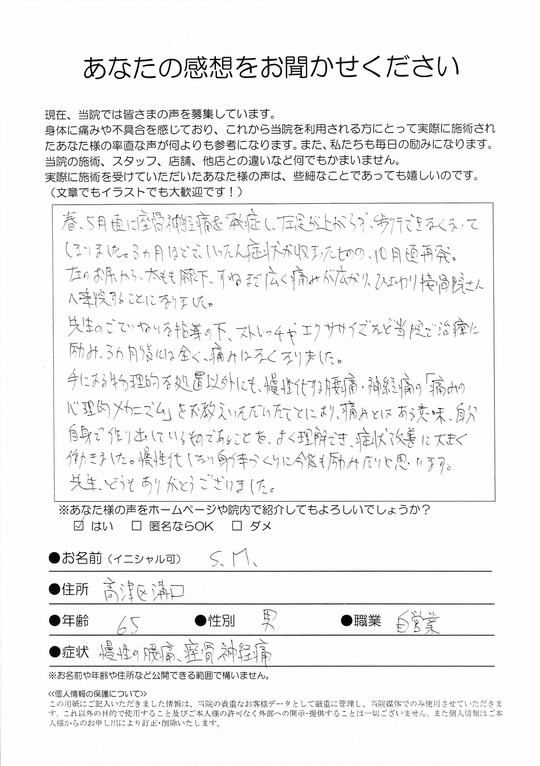 あなたの感想をお聞かせください
現在、当院では皆さまの声を募集しています。
身体に痛みや不具合を感じており、これから当院を利用される方にとって実際に施術され
たあなた様の率直な声が何よりも参考になります。また、私たちも毎日の励みになります。
当院の施術、スタッフ、店舗、他店との違いなど何でもかまいません。
実際に施術を受けていただいたあなた様の声は、些細なことであっても嬉しいのです。
(文章でもイラストでも大歓迎です!)
春、5月頃に座骨神経痛を発症し、左足が上がらず、歩行できなくなって
しまいました。3ヵ月ほどで、いったん症状が収まったものの、10月頃再発。
左のお尻から、太もも膝下、すねまで広く痛みが広がり、ひまわり接骨院さん
へ来院することになりました。
先生のごていねいな指導の下、ストレッチやエクササイズなど当院で治療に
励み、3ヵ月後には全く、痛みはなくなりました。
手による物理的な処置以外にも、慢性化する腰痛・神経痛の「痛みの
心理的メカニズム」をお教えいただいたことにより、痛みとはある意味、自分
自身で作り出しているものであることを、よく理解でき、症状改善に大きく
働きました。慢性化しない身体づくりに今後も励みたいと思います。
先生、どうもありがとうございました。
※あなた様の声をホームページや院内で紹介してもよろしいでしょうか?
☑ はい □ 匿名ならOK □ ダメ
●お名前(イニシャル可) S.M.
●住所 高津区溝口
●年齢 65 ●性別 男 ●職業 自営業
●症状 慢性の腰痛、座骨神経痛
※お名前や年齢や住所など公開できる範囲で構いません。
≪個人情報の保護について≫
この用紙にご記入いただきました情報は、当院の貴重なお客様データとして厳重に管理し、当院媒体でのみ使用させていただきま
す。これ以外の目的で使用すること及びご本人様の許可なく外部への開示・提供することは一切ございません。また個人情報はご本
人様からのお申し出により訂正・削除いたします。